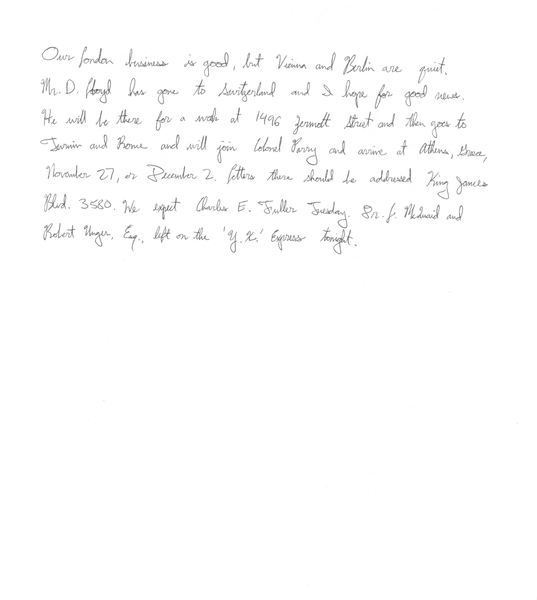 Our London business is good, but Vienna and Berlin are quiet.
Mr. D. Lloyd has gone to Switzerland and I hope for good news.
He will be there for a week at 1496 Zermott Street and then goes to
Turin and Rome and will join Colonel Parry and arrive at Athens, Greece,
November 27, or December 2. Letters there should be addressed King James
Blvd. 3580. We expect Charles E. Fuller Tuesday. Dr. L. McQuaid and
Robert Unger, Esq., left on the 'Y.X.' Express tonight.